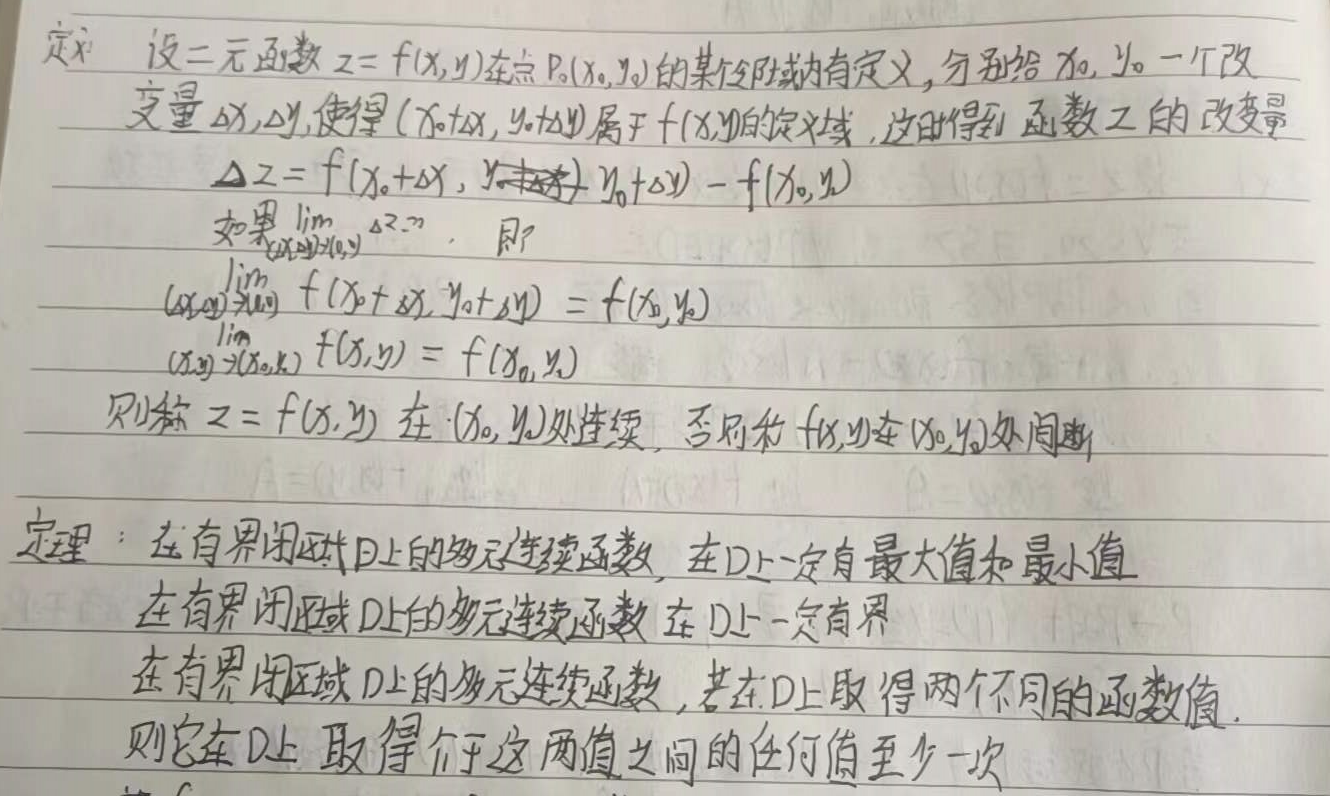 定义 设二元函数 z = f(x,y)在点 P₀(x₀,y₀)的某个邻域内有定义,分别给 x₀, y₀ 一个改
变量 Δx,Δy,使得(x₀+Δx, y₀+Δy)属于 f(x,y)的定义域,这时得到 函数 z 的 改变量
Δz = f(x₀+Δx, y₀+Δy) - f(x₀,y₀)
如果 lim (Δx,Δy)→(0,0) Δz = 0. 即
lim (Δx,Δy)→(0,0) f(x₀+Δx, y₀+Δy) = f(x₀,y₀)
lim (x,y)→(x₀,y₀) f(x,y) = f(x₀,y₀)
则称 z = f(x,y) 在 (x₀,y₀)处连续, 否则称 f(x,y)在(x₀,y₀)处间断
定理: 在有界闭区域D上的多元连续函数, 在D上一定有最大值和最小值
在有界闭区域D上的多元连续函数 在D上一定有界
在有界闭区域D上的多元连续函数,若在D上取得两个不同的函数值.
则它在D上 取得介于这两值之间的任何值至少一次